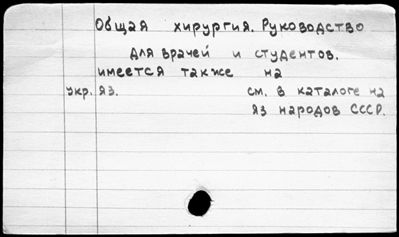 Общая хирургия. Руководство
для врачей и студентов.
имеется также на
укр. яз. см. в каталоге на
яз народов СССР.